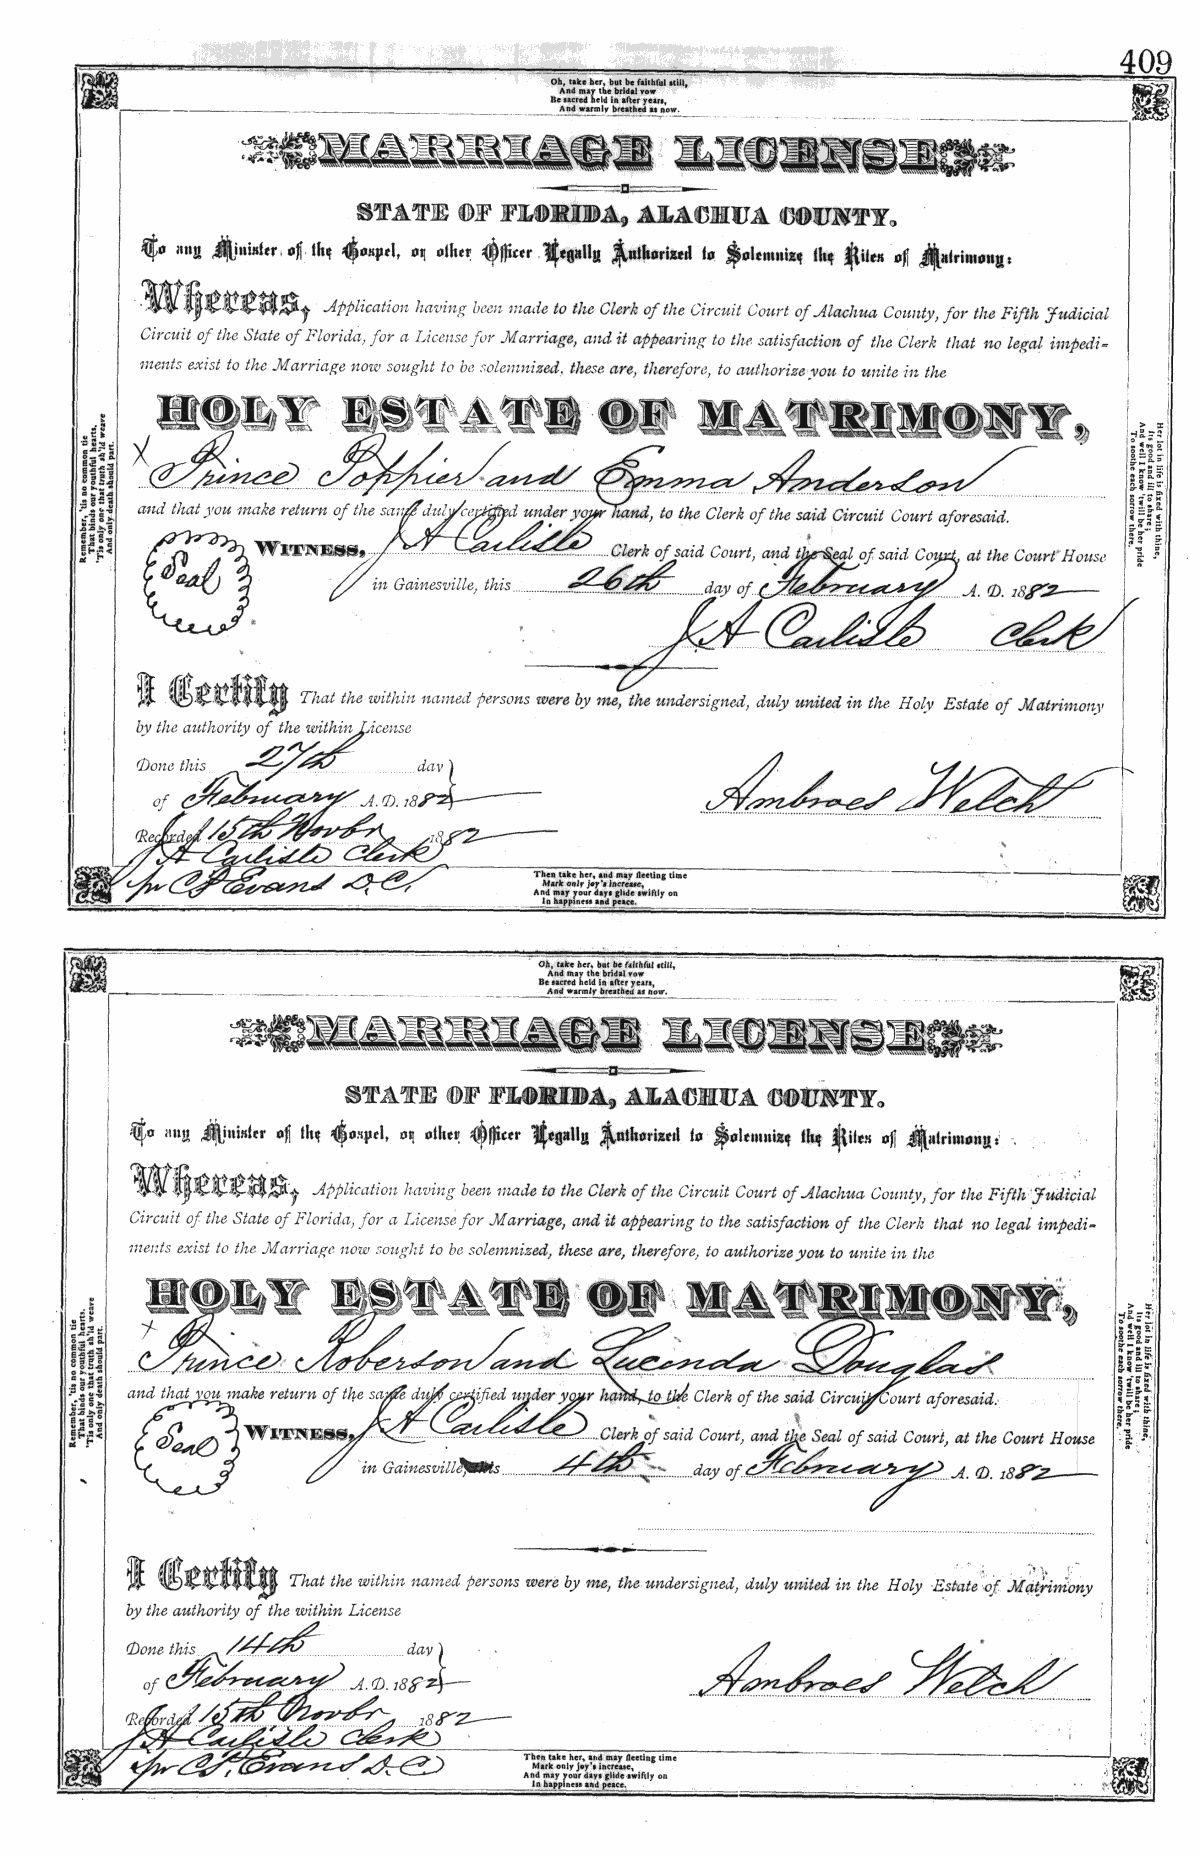 409
Oh, take her, but be faithful still,
And may the bridal vow
Be sacred held in after years,
And warmly breathed as now.
MARRIAGE LICENSE
STATE OF FLORIDA, ALACHUA COUNTY.
To any Minister of the Gospel, or other Officer Legally Authorized to Solemnize the Rites of Matrimony:
Whereas, Application having been made to the Clerk of the Circuit Court of Alachua County, for the Fifth Judicial
Circuit of the State of Florida, for a License for Marriage, and it appearing to the satisfaction of the Clerk that no legal impedi-
ments exist to the Marriage now sought to be solemnized, these are, therefore, to authorize you to unite in the
HOLY ESTATE OF MATRIMONY,
X Prince Poppier and Emma Anderson
and that you make return of the same duly certified under your hand, to the Clerk of the said Circuit Court aforesaid.
Seal
WITNESS, J A Carlisle Clerk of said Court, and the Seal of said Court, at the Court House
in Gainesville, this 26th day of February A. D. 1882
J. A Carlisle Clerk
I Certify That the within named persons were by me, the undersigned, duly united in the Holy Estate of Matrimony
by the authority of the within License
Done this 27th day
of February A. D. 1882
Ambroes Welch
Recorded 15th Novbr 1882
J A Carlisle Clerk
pr C P Evans D. C.
Remember, 'tis no common tie
That binds our youthful hearts,
'Tis only one that truth sh'ld weave
And only death should part.
Her lot in life is fixed with thine,
Its good and ill to share;
And well I know 'twill be her pride
To soothe each sorrow there.
Then take her, and may fleeting time
Mark only joy's increase,
And may your days glide swiftly on
In happiness and peace.
Oh, take her, but be faithful still,
And may the bridal vow
Be sacred held in after years,
And warmly breathed as now.
MARRIAGE LICENSE
STATE OF FLORIDA, ALACHUA COUNTY.
To any Minister of the Gospel, or other Officer Legally Authorized to Solemnize the Rites of Matrimony:
Whereas, Application having been made to the Clerk of the Circuit Court of Alachua County, for the Fifth Judicial
Circuit of the State of Florida, for a License for Marriage, and it appearing to the satisfaction of the Clerk that no legal impedi-
ments exist to the Marriage now sought to be solemnized, these are, therefore, to authorize you to unite in the
HOLY ESTATE OF MATRIMONY,
X Prince Roberson and Lucenda Douglas
and that you make return of the same duly certified under your hand, to the Clerk of the said Circuit Court aforesaid.
Seal
WITNESS, J A Carlisle Clerk of said Court, and the Seal of said Court, at the Court House
in Gainesville, this 4th day of February A. D. 1882
I Certify That the within named persons were by me, the undersigned, duly united in the Holy Estate of Matrimony
by the authority of the within License
Done this 14th day
of February A. D. 1882
Ambroes Welch
Recorded 15th Novbr 1882
J A Carlisle Clerk
pr C P. Evans D. C
Remember, 'tis no common tie
That binds our youthful hearts,
'Tis only one that truth sh'ld weave
And only death should part.
Her lot in life is fixed with thine,
Its good and ill to share;
And well I know 'twill be her pride
To soothe each sorrow there.
Then take her, and may fleeting time
Mark only joy's increase,
And may your days glide swiftly on
In happiness and peace.